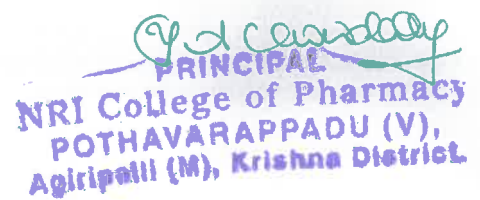 PRINCIPAL
NRI College of Pharmacy
POTHAVARAPPADU (V),
Agiripalli (M), Krishna District.